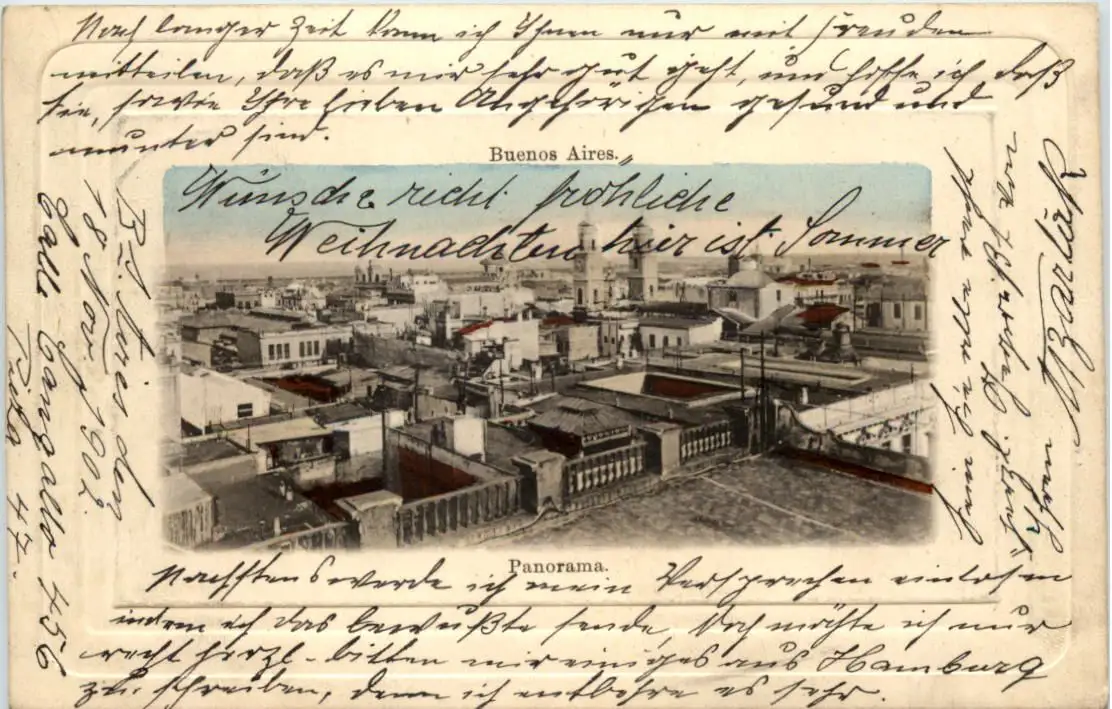 Nach langer Zeit kann ich Ihnen nur mit Freuden
mitteilen, daß es mir sehr gut geht, und hoffe ich, daß
Sie, sowie Ihre lieben Angehörigen gesund und
munter sind.
Buenos Aires.
Wünsche recht fröhliche
Weihnachten hier ist Sommer
B. Aires den
18 Nov. 1902
Calle Cangallo 456
47.
Panorama.
Nächstens werde ich mein Versprechen einlösen
indem ich das bewußte sende, Doch möchte ich nur
recht herzl. bitten mir einiges aus Hamburg
zu schreiben, denn ich entbehre es sehr.
Seien Sie alle recht
herzl. gegrüßt von
Ihrem